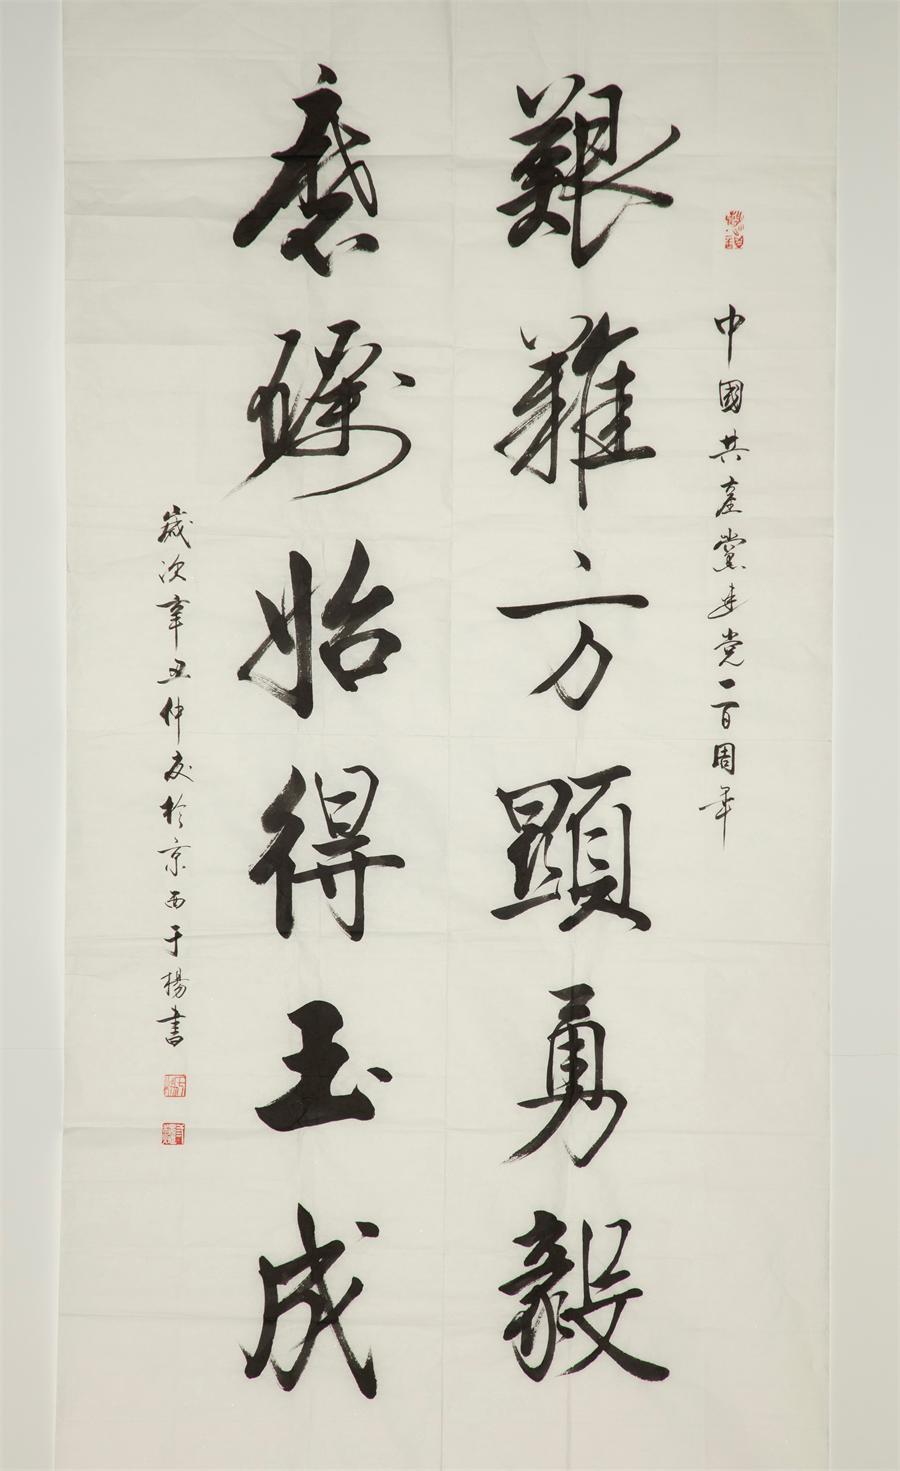 中國共產黨建党一百周年
艱難方顯勇毅
磨礪始得玉成
歲次辛丑仲夏於京西于楊書